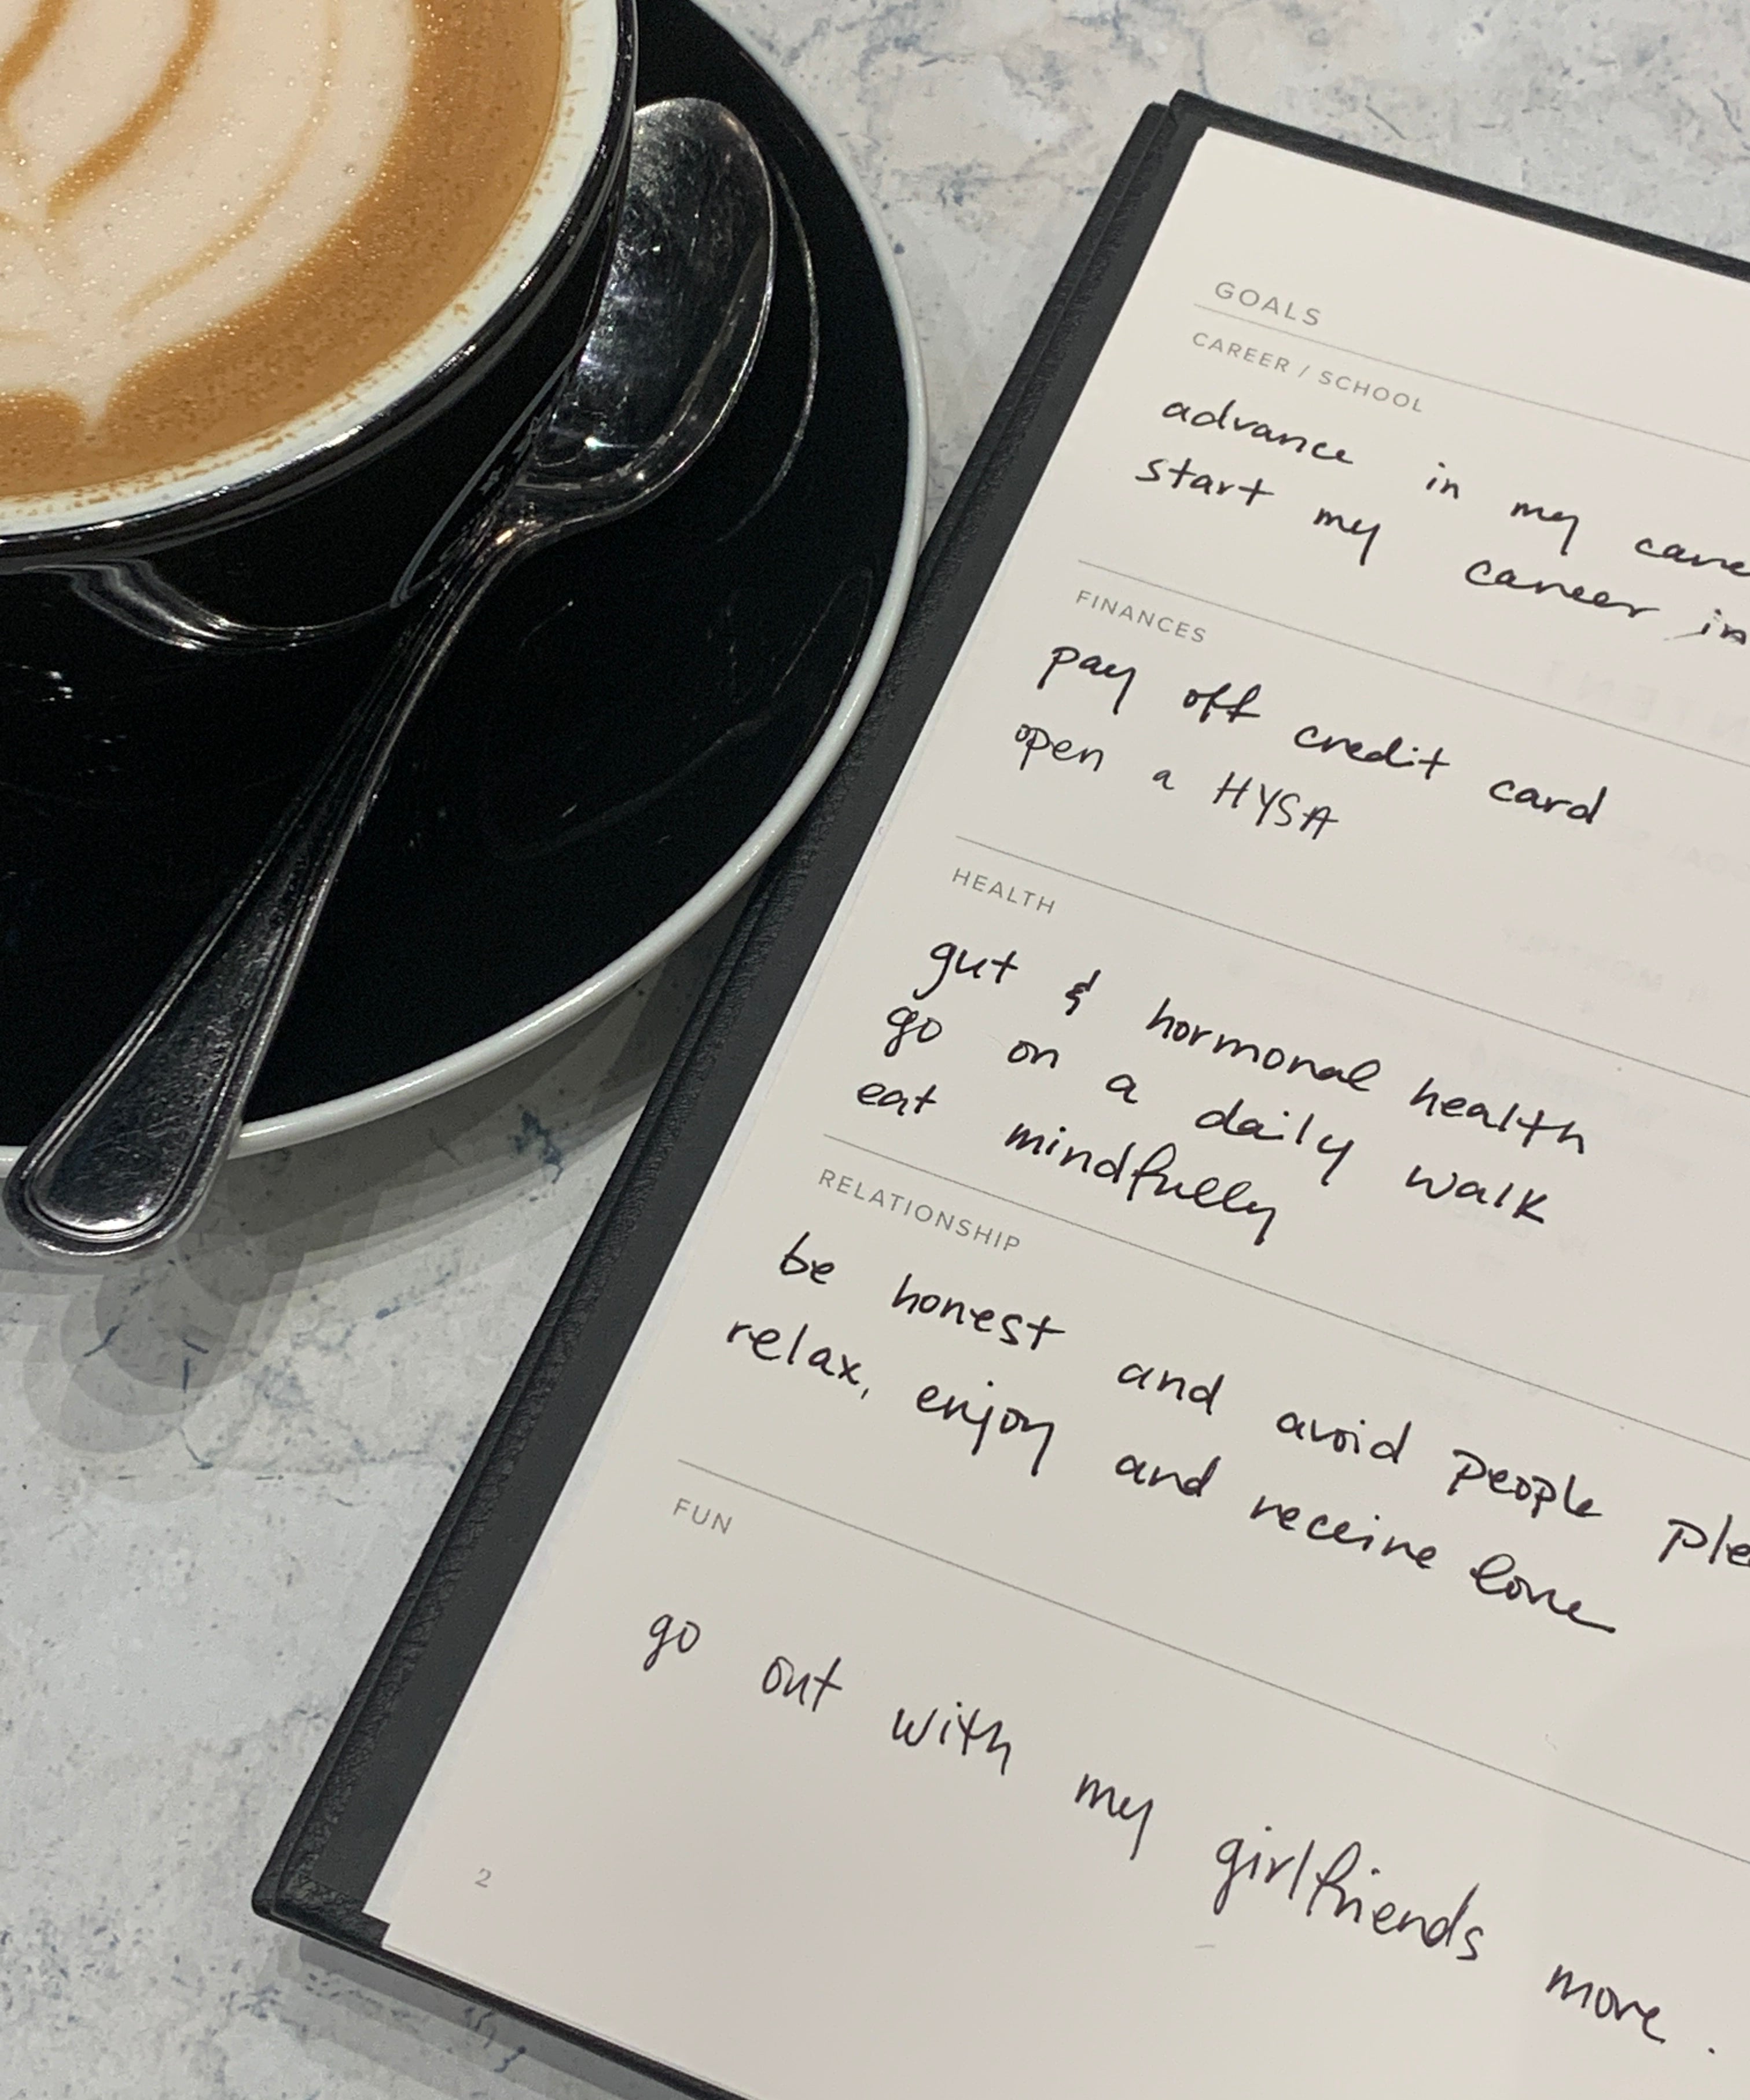 GOALS
CAREER / SCHOOL
advance in my
start my career in
FINANCES
pay off credit card
open a HYSA
HEALTH
gut & hormonal health
go on a daily walk
eat mindfully
RELATIONSHIP
be honest and avoid people
relax, enjoy and receive love
FUN
go out with my girlfriends more.
2